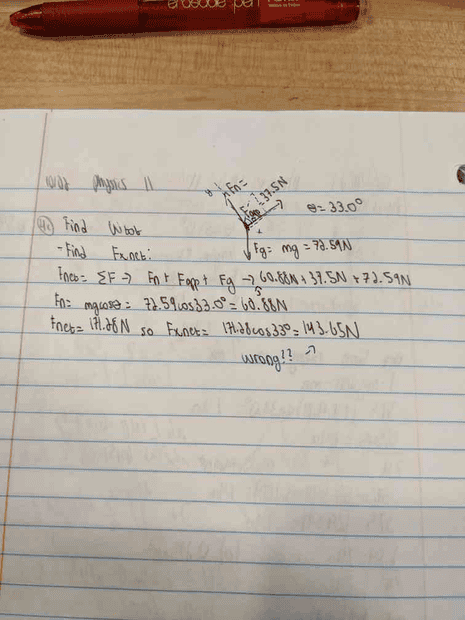 erasable pen
10/02 Physics 11
Fn=
37.5N
Fapp
θ = 33.0°
Fg = mg = 72.59N
Find Wtot
- Find Fxnet:
Fnet = ΣF → Fn + Fapp + Fg → 60.88N + 37.5N + 72.59N
Fn = mgcosθ = 72.59cos33.0° = 60.88N
Fnet = 171.28N so Fxnet = 171.28cos33° = 143.65N
wrong?? →